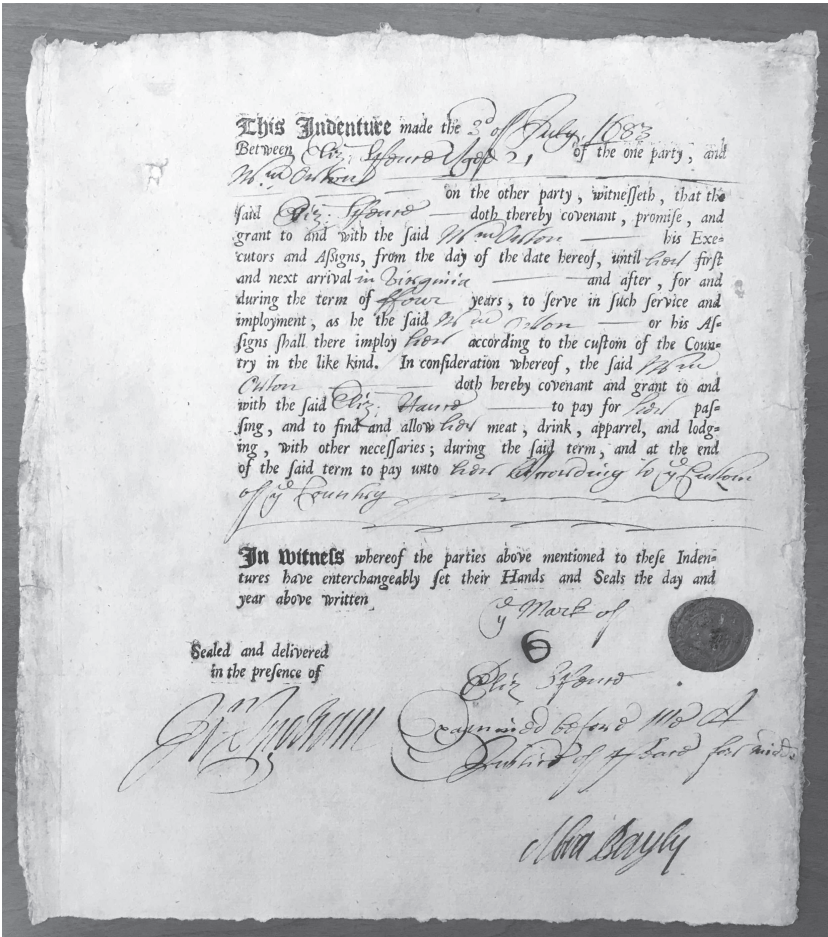 This Indenture made the 3º of July, 1683
Between Eliz: aged 21 of the one party, and
Wm Orton
on the other party, witneſſeth, that the
ſaid Eliz: doth thereby covenant, promiſe, and
grant to and with the ſaid Wm Orton his Exe-
cutors and Aſſigns, from the day of the date hereof, until her firſt
and next arrival in Virginia and after, for and
during the term of ffour years, to ſerve in ſuch ſervice and
imployment, as he the ſaid Wm Orton or his Aſ-
ſigns ſhall there imploy her according to the cuſtom of the Coun-
try in the like kind. In conſideration whereof, the ſaid Wm
Orton doth hereby covenant and grant to and
with the ſaid Eliz: to pay for her paſ-
ſing, and to find and allow her meat, drink, apparel, and lodg-
ing, with other neceſſaries; during the ſaid term, and at the end
of the ſaid term to pay unto her According to ye Cuſtom
of ye Country
In witneſs whereof the parties above mentioned to theſe Inden-
tures have enterchangeably ſet their Hands and Seals the day and
year above written
ye Mark of
Sealed and delivered
in the preſence of
Eliz
before Me A
Juſtice of for
Bayly